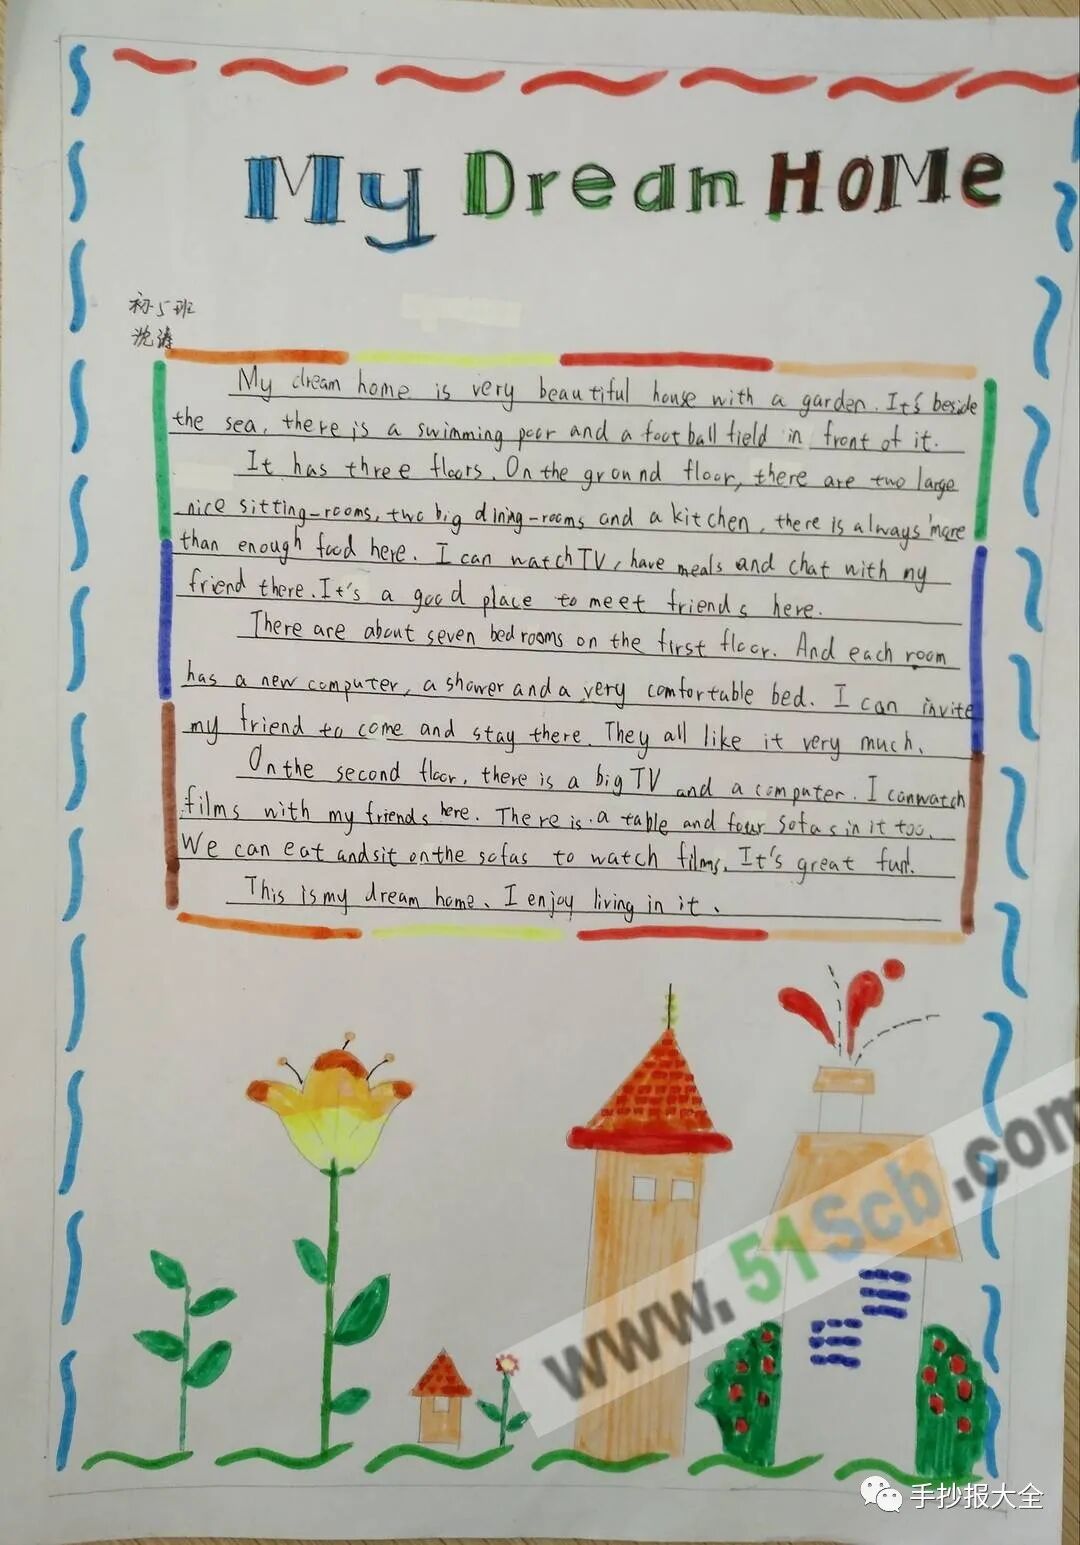 My Dream HoMe
初5班
沈涛
My dream home is very beautiful house with a garden. It's beside
the sea, there is a swimming poor and a football field in front of it.
It has three floors. On the ground floor, there are two large
nice sitting-rooms, two big dining-rooms and a kitchen, there is always more
than enough food here. I can watch TV, have meals and chat with my
friend there. It's a good place to meet friends here.
There are about seven bedrooms on the first floor. And each room
has a new computer, a shower and a very comfortable bed. I can invite
my friend to come and stay there. They all like it very much.
On the second floor, there is a big TV and a computer. I can watch
films with my friends here. There is a table and four sofas in it too.
We can eat and sit on the sofas to watch films. It's great fun.
This is my dream home. I enjoy living in it.
www.51Scb.com
手抄报大全